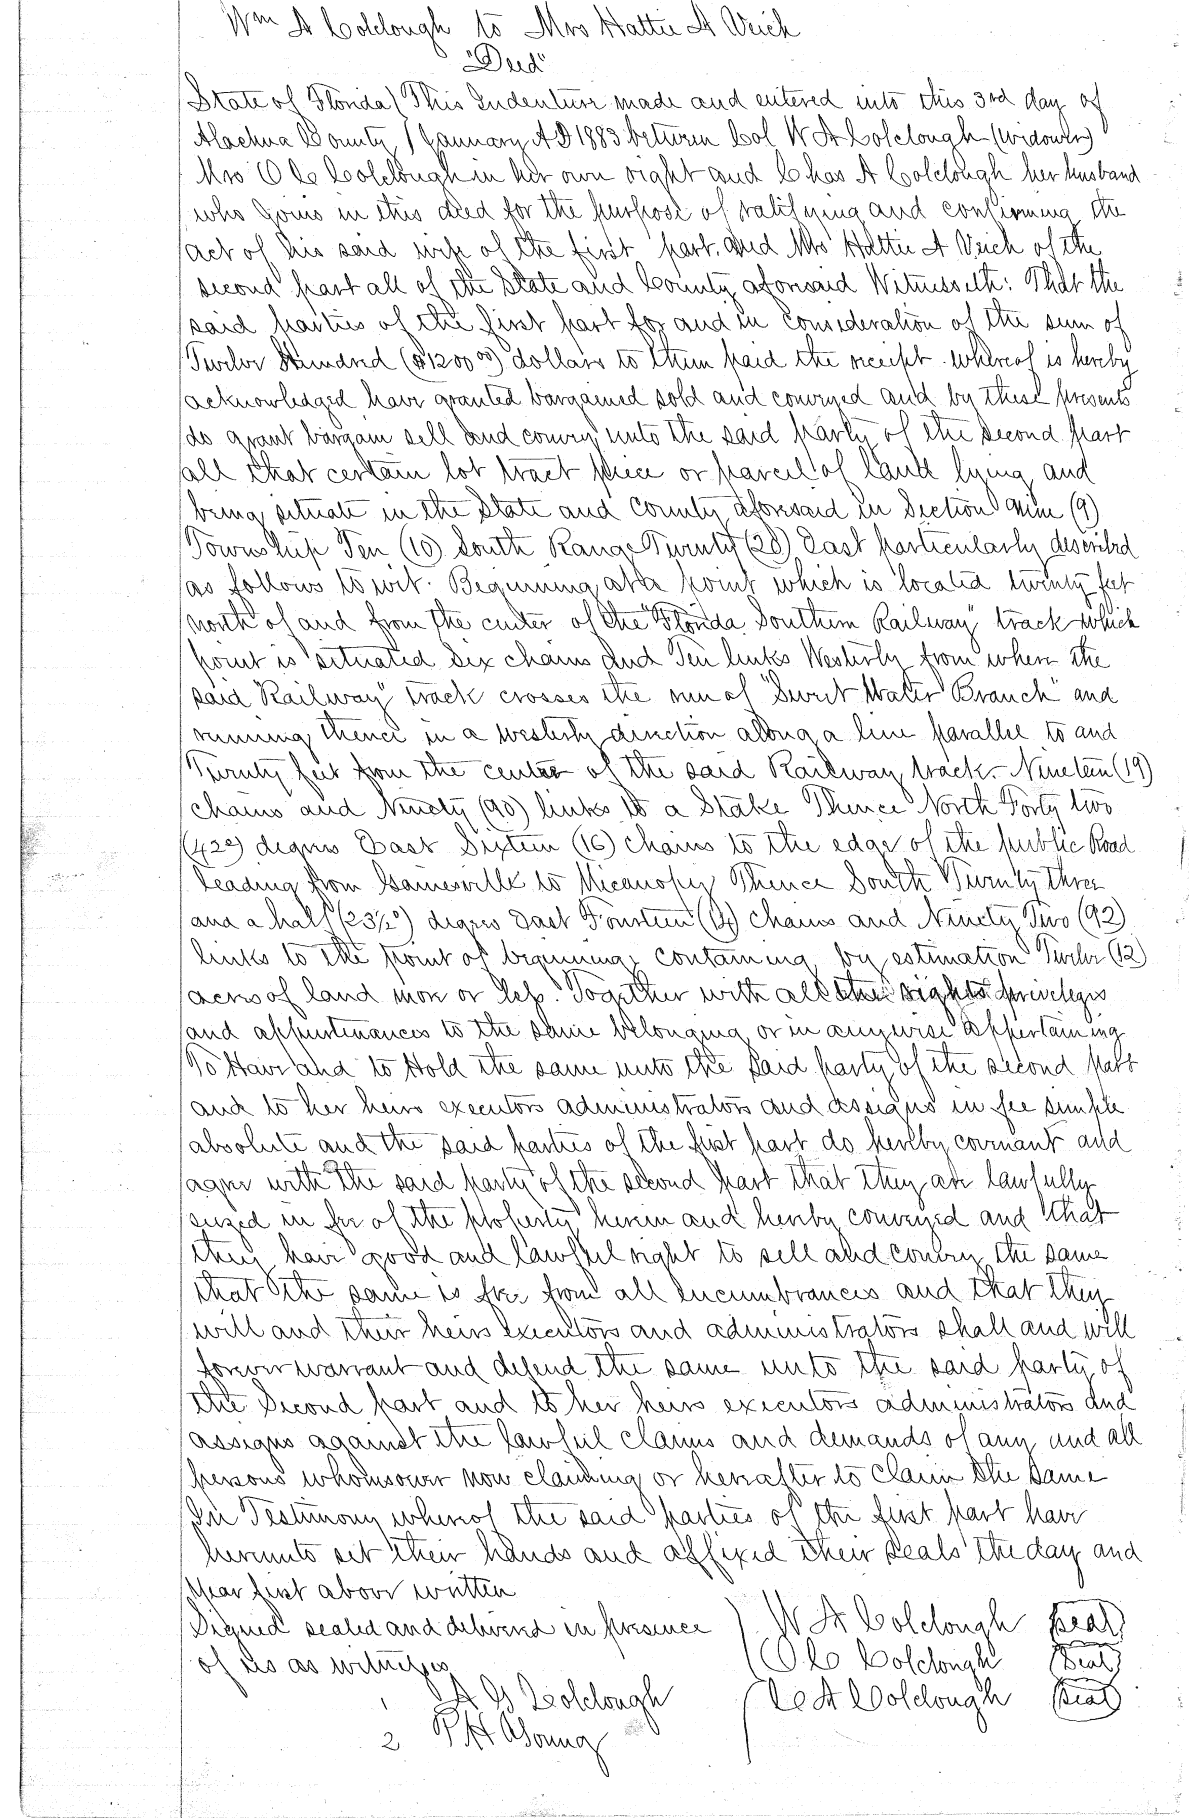 Wm A Colclough to Mrs Hattie A Veich
"Deed"
State of Florida) This Indenture made and entered into this 3rd day of
Alachua County ) January AD 1883 between Col W A Colclough (widower)
Mrs O C Colclough in her own right and Chas A Colclough her husband
who joins in this deed for the purpose of ratifying and confirming the
act of his said wife of the first part. and Mrs Hattie A Veich of the
second part all of the State and County aforesaid Witnesseth: That the
said parties of the first part for and in consideration of the sum of
Twelve Hundred ($1200 00) dollars to them paid the receipt whereof is hereby
acknowledged have granted bargained sold and conveyed and by these presents
do grant bargain sell and convey unto the said party of the second part
all that certain lot tract piece or parcel of land lying and
being situate in the State and County aforesaid in Section Nine (9)
Township Ten (10) South Range Twenty (20) East particularly described
as follows to wit. Beginning at a point which is located twenty feet
north of and from the center of the "Florida Southern Railway" track which
point is situated Six chains and Ten links Westerly from where the
said "Railway" track crosses the run of "Sweet Water Branch" and
running thence in a westerly direction along a line parallel to and
Twenty feet from the center of the said Railway track. Nineteen (19)
chains and Ninety (90) links to a Stake Thence North Forty two
(42°) degrees East Sixteen (16) chains to the edge of the public Road
leading from Gainesville to Micanopy Thence South Twenty three
and a half (23½°) degrees East Fourteen (14) chains and Ninety Two (92)
links to the point of beginning containing by estimation Twelve (12)
acres of land more or less. Together with all the rights priveleges
and appurtenances to the same belonging or in anywise appertaining
To Have and to Hold the same unto the said party of the second part
and to her heirs executors administrators and assigns in fee simple
absolute and the said parties of the first part do hereby covenant and
agree with the said party of the second part that they are lawfully
seized in fee of the property herein and hereby conveyed and that
they have good and lawful right to sell and convey the same
that the same is free from all incumbrances and that they
will and their heirs executors and administrators shall and will
forever warrant and defend the same unto the said party of
the Second part and to her heirs executors administrators and
assigns against the lawful claims and demands of any and all
persons whomsoever now claiming or hereafter to claim the same
In Testimony whereof the said parties of the first part have
hereunto set their hands and affixed their seals the day and
year first above written
Signed sealed and delivered in presence ) W A Colclough (Seal)
of us as witnesses ( O C Colclough (Seal)
1 A G Colclough ( C A Colclough (Seal)
2 P H Young